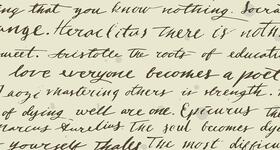 ing that you know nothing. Socra
ange. Heraclitus There is noth
sweet. Aristotle The roots of educati
love everyone becomes a poet
Laozi Mastering others is strength.
of dying well are one. Epicurus The
marcus Aurelius The soul becomes dy
yourself Thales The most difficu